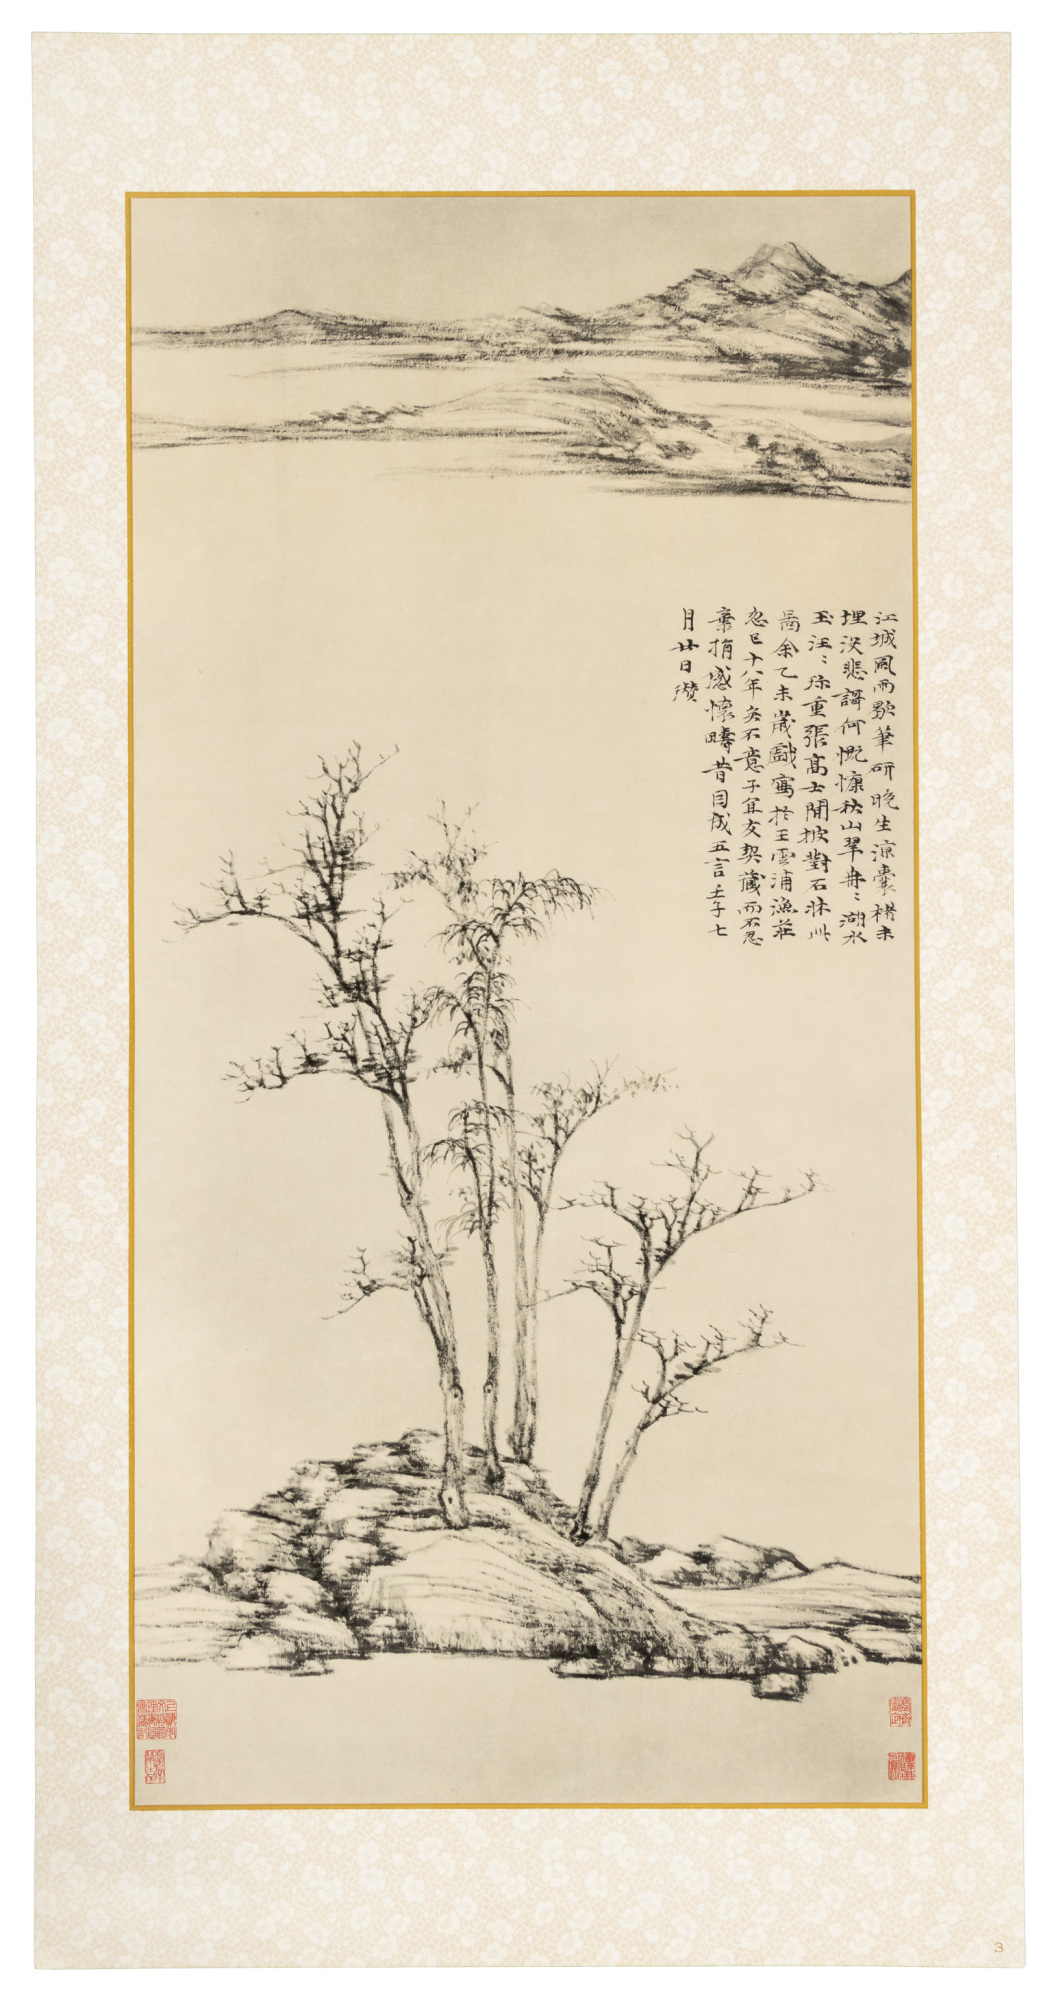 江城風雨歇筆研晚生涼囊楮未
埋沒悲謌何慨慷秋山翠冉〻湖水
玉汪〻珍重張高士閒披對石牀此
啚余乙未歲戲寫於王雲浦漁莊
忽已十八年矣不意子宜友契藏而不忍
棄捐感懷疇昔因成五言壬子七
月廿日瓚
3